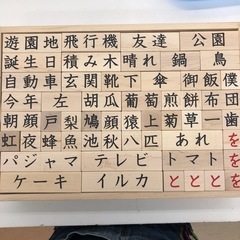 遊園地 飛行機 友達 公園
誕生日 積み木 晴れ 鍋 鳥
自動車 玄関 靴下 傘 御飯 僕
今年 左 胡瓜 葡萄 煎餅 布団
朝顔 戸 梨 鳩 顔 猿 上 菊 草 一 歯
虹 夜 蜂 魚 池 秋 八 匹 あれ を
パジャマ テレビ トマト を
ケーキ イルカ と と と を